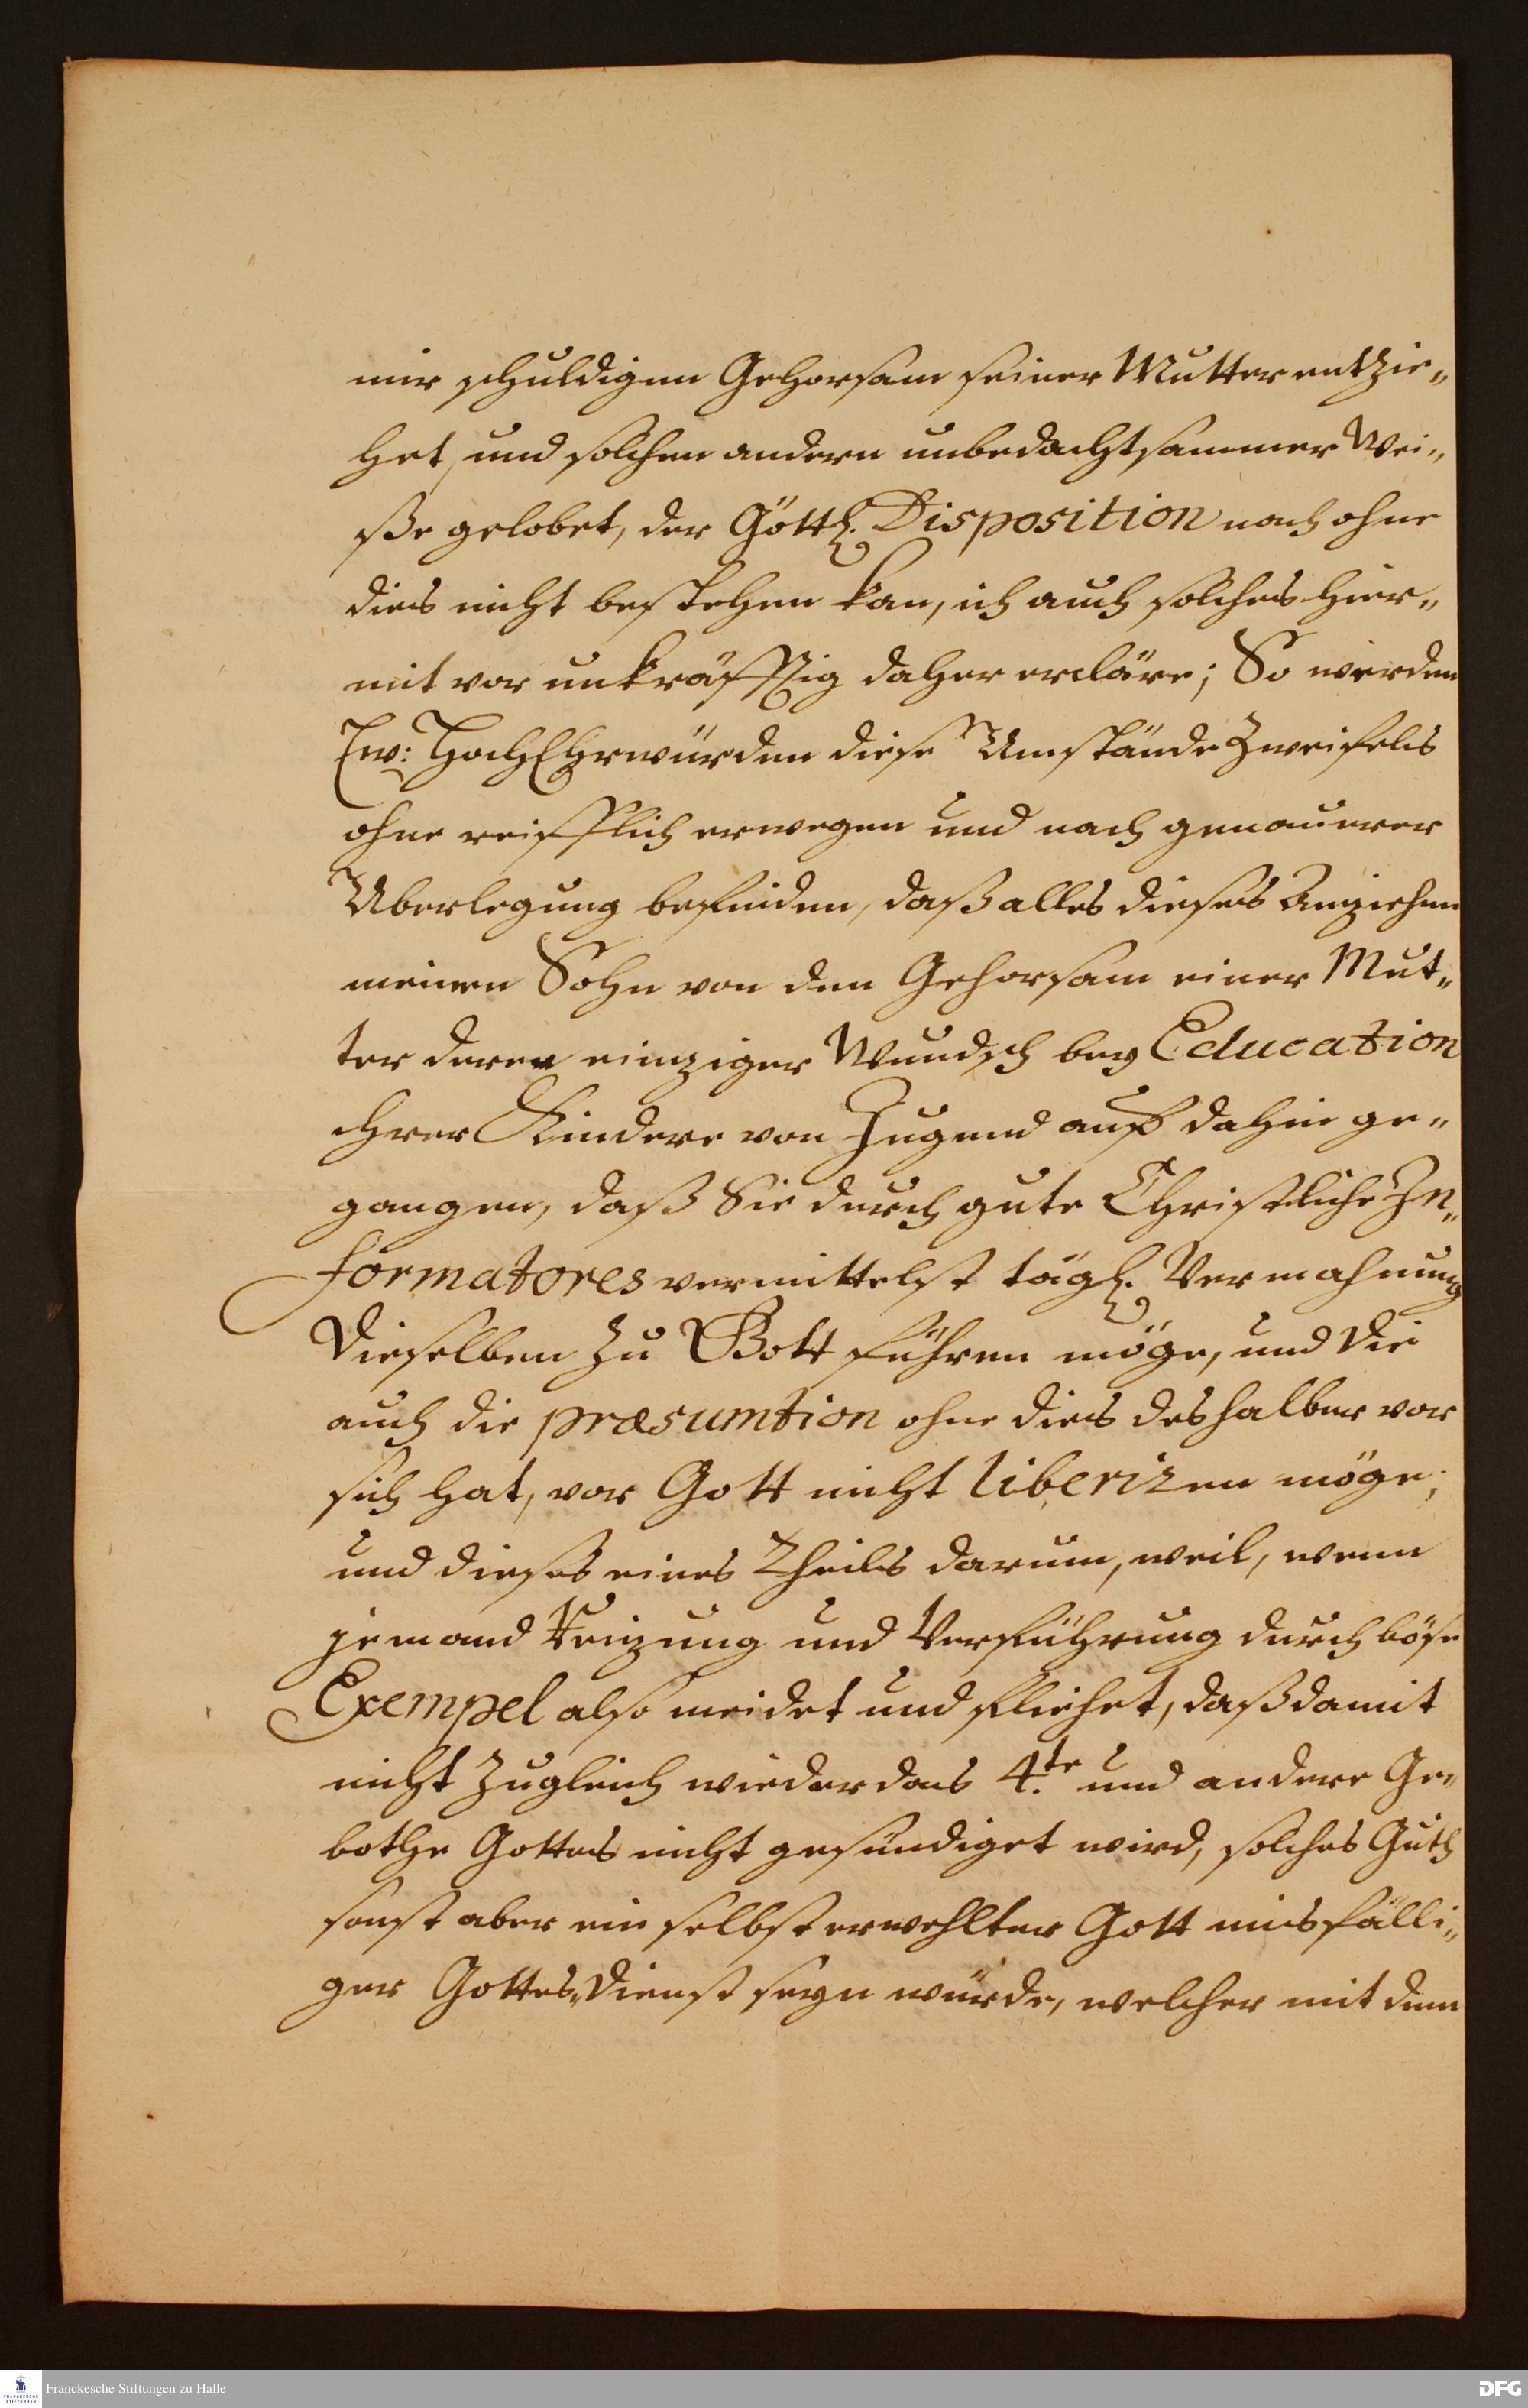 mir schuldigen Gehorsam seiner Mutter entzie„
het, und solchen andern unbedachtsammer Wei„
ße gelobet, der Göttl. Disposition nach ohne
dies nicht bestehen kan, ich auch solches hier„
mit vor unkräfftig daher ercläre; So werden
Ew: HochEhrwürden diese Umstände Zweifels
ohne reifflich erwegen und nach genauerer
Uberlegung befinden, daß alles dieses
meinen Sohn von dem Gehorsam einer Mut„
ter deren einziger Wundsch bey Education
ihrer Kindere von Jugend auf dahin ge„
gangen, daß Sie durch gute Christliche In„
formatores vermittelst tägl. Vermahnung
Dieselben zu Gott führen möge, und die
auch die præsumtion ohne dies deshalber vor
sich hat, vor Gott nicht liberiren möge;
und dieses eines Theils darum, weil, wenn
jemand Reizung und Verführung durch böse
Exempel also meidet und fliehet, daß damit
nicht zugleich wieder das 4.te und andere Ge„
bothe Gottes nicht gesündiget wird, solches Guth
sonst aber ein selbst erwehlter Gott misfälli„
ger Gottes„Dienst seyn würde, welcher mit dem
Franckesche Stiftungen zu Halle
DFG